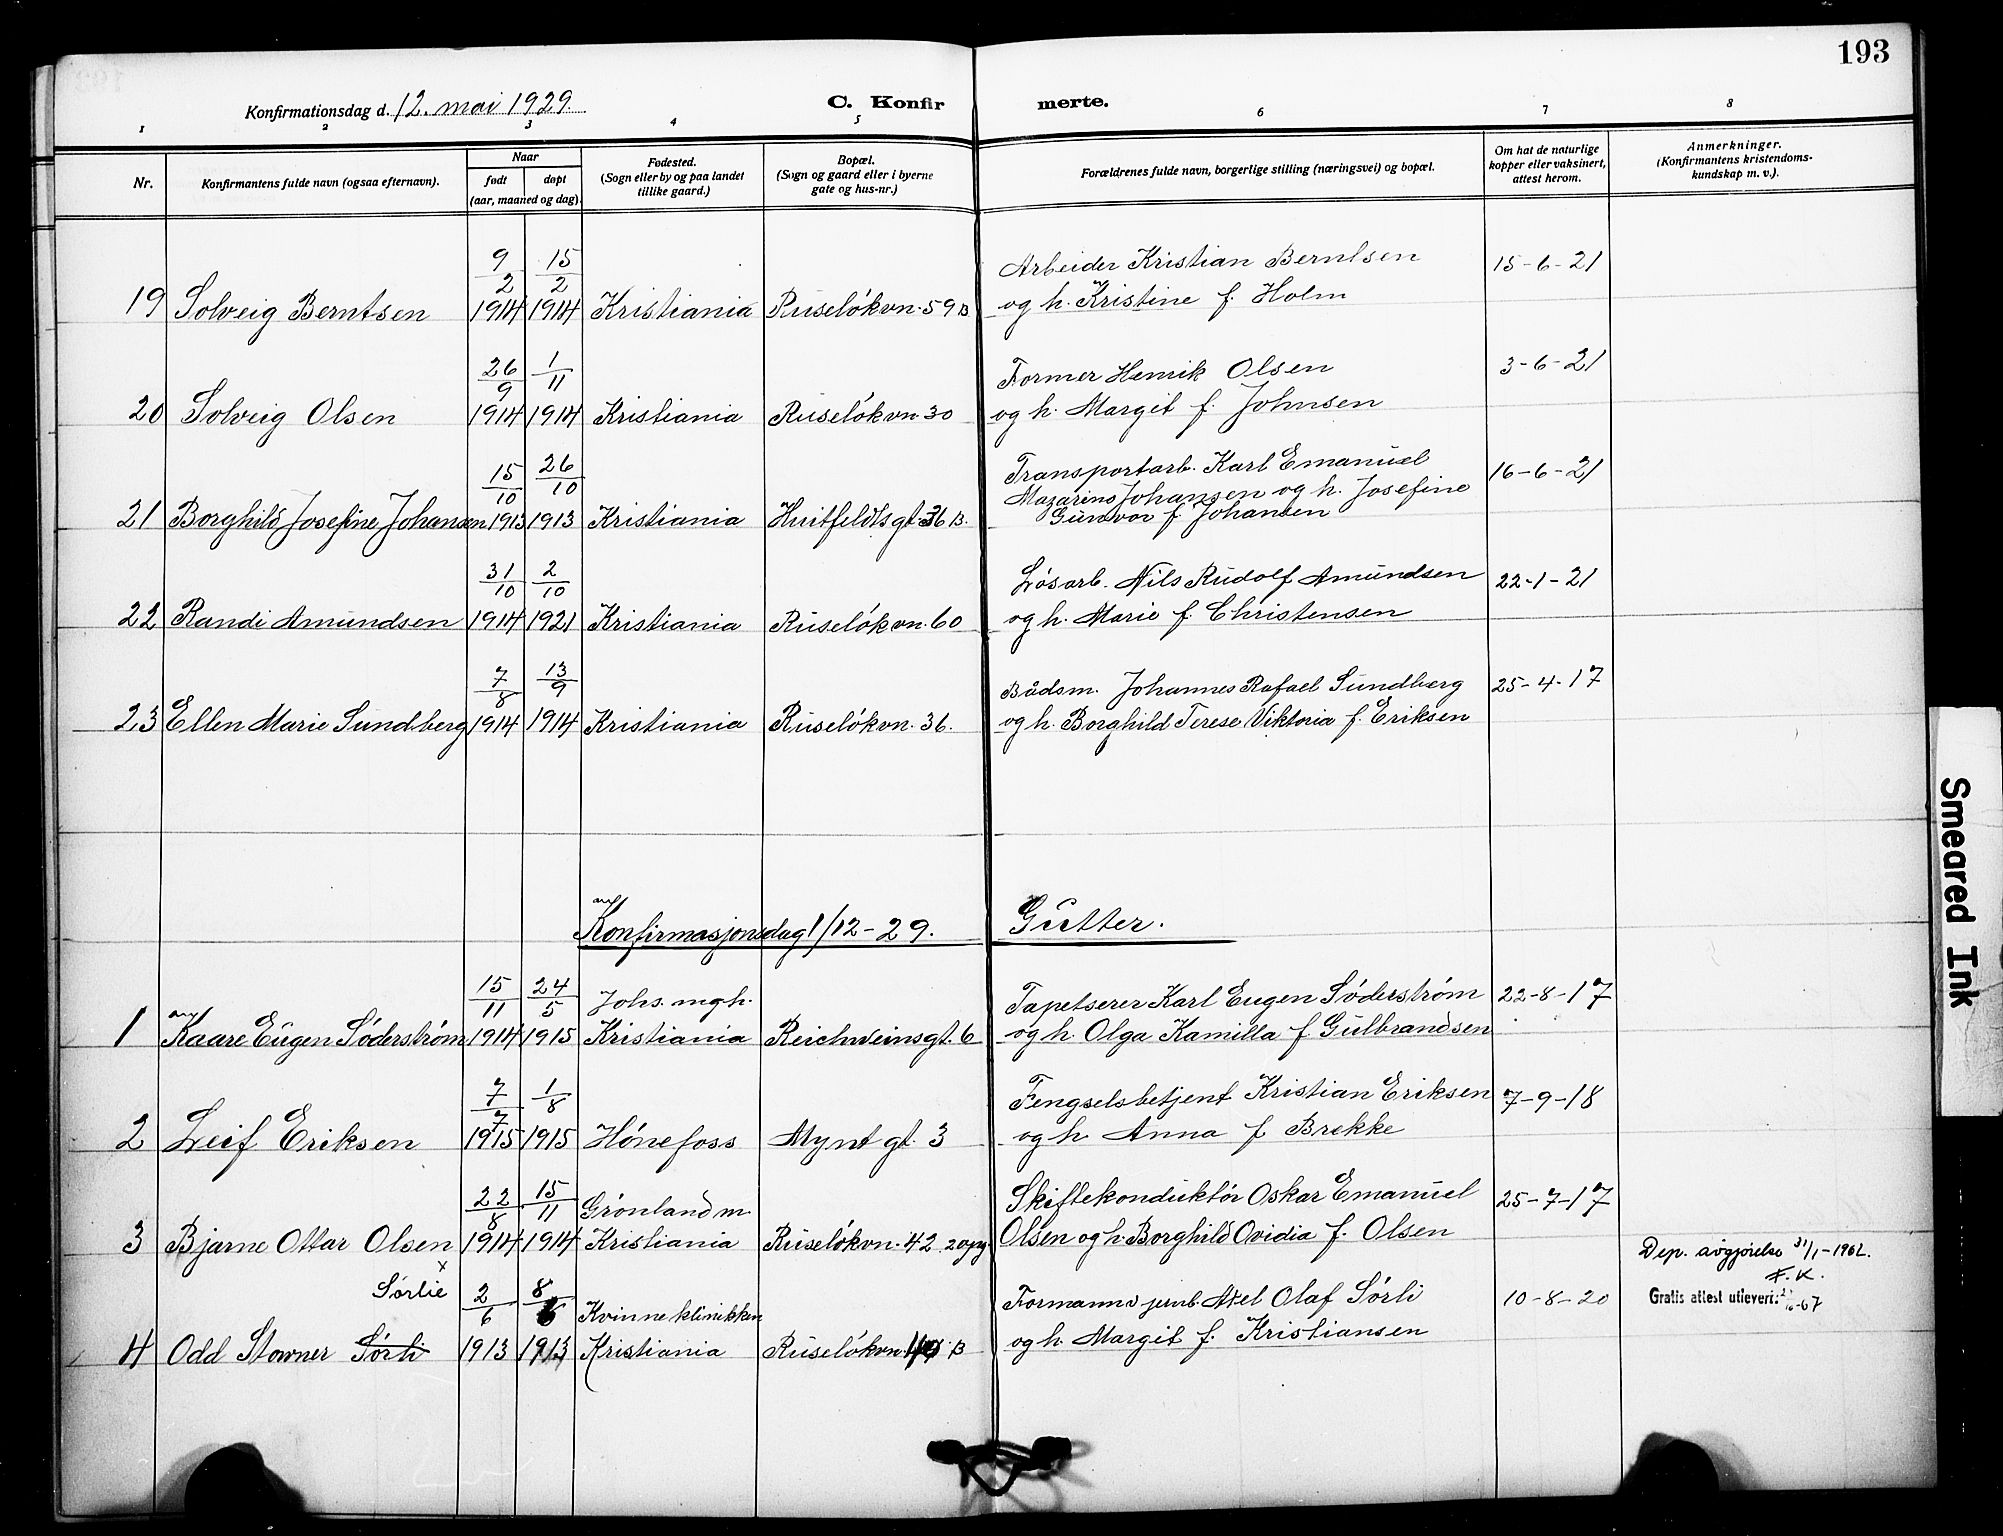 193
Konfirmationsdag d. 12. mai 1929.
C. Konfir merte.
1 2 3 4 5 6 7 8
Nr.
Konfirmantens fulde navn (ogsaa efternavn).
Naar
født døpt
(aar, maaned og dag).
Fødested.
(Sogn eller by og paa landet
tillike gaard.)
Bopæl.
(Sogn og gaard eller i byerne
gate og hus-nr.)
Forældrenes fulde navn, borgerlige stilling (næringsvei) og bopæl.
Om hat de naturlige
kopper eller vaksinert,
attest herom.
Anmerkninger.
(Konfirmantens kristendoms-
kundskap m. v.).
9/2 15/2 Arbeider Kristian Berntsen 15-6-21
19 Solveig Berntsen 1914 1914 Kristiania Ruseløkvn. 59 B og h. Kristine f. Holm
26/9 1/11 Former Henrik Olsen 3-6-21
20 Solveig Olsen 1914 1914 Kristiania Ruseløkvn. 30 og h. Margit f. Johnsen
15/10 26/10 Transportarb. Karl Emanuel 16-6-21
Mazarins Johansen og h. Josefine
21 Borghild Josefine Johansen 1913 1913 Kristiania Huitfeldtsgt. 36 B. Gunvor f. Johansen
31/10 2/10 Løsarb. Nils Rudolf Amundsen 22-1-21
22 Randi Amundsen 1914 1921 Kristiania Ruseløkvn. 60 og h. Marie f. Christensen
7/8 13/9 Bådsm. Johannes Rafael Sundberg 25-4-17
23 Ellen Marie Sundberg 1914 1914 Kristiania Ruseløkvn. 36. og h. Borghild Terese Viktoria f. Eriksen
Konfirmasjonsdag 1/12-29. Gutter.
15/11 24/5 Johs. mgh. Tapetserer Karl Eugen Søderstrøm 22-8-17
1 Kaare Eugen Søderstrøm 1914 1915 Kristiania Reichweinsgt. 6 og h. Olga Kamilla f. Gulbrandsen
7/7 1/8 Fengselsbetjent Kristian Eriksen 7-9-18
2 Leif Eriksen 1915 1915 Hønefoss Myntgt. 3 og h. Anna f. Brekke
22/8 15/11 Grønland m. Skiftekonduktør Oskar Emanuel 25-7-17
3 Bjarne Ottar Olsen 1914 1914 Kristiania Ruseløkvn. 42 2 opg. Olsen og h. Borghild Ovidia f. Olsen
Dep. avgjørelse 31/1-1962.
F.K.
Sørlie x 2/6 8/6 Kvinneklinikken Formann v jernb. Axel Olaf Sørli 10-8-20 Gratis attest utlevert
-67
4 Odd Stowner Sørli 1913 1913 Kristiania Ruseløkvn. B og h. Margit f. Kristiansen
Smeared Ink